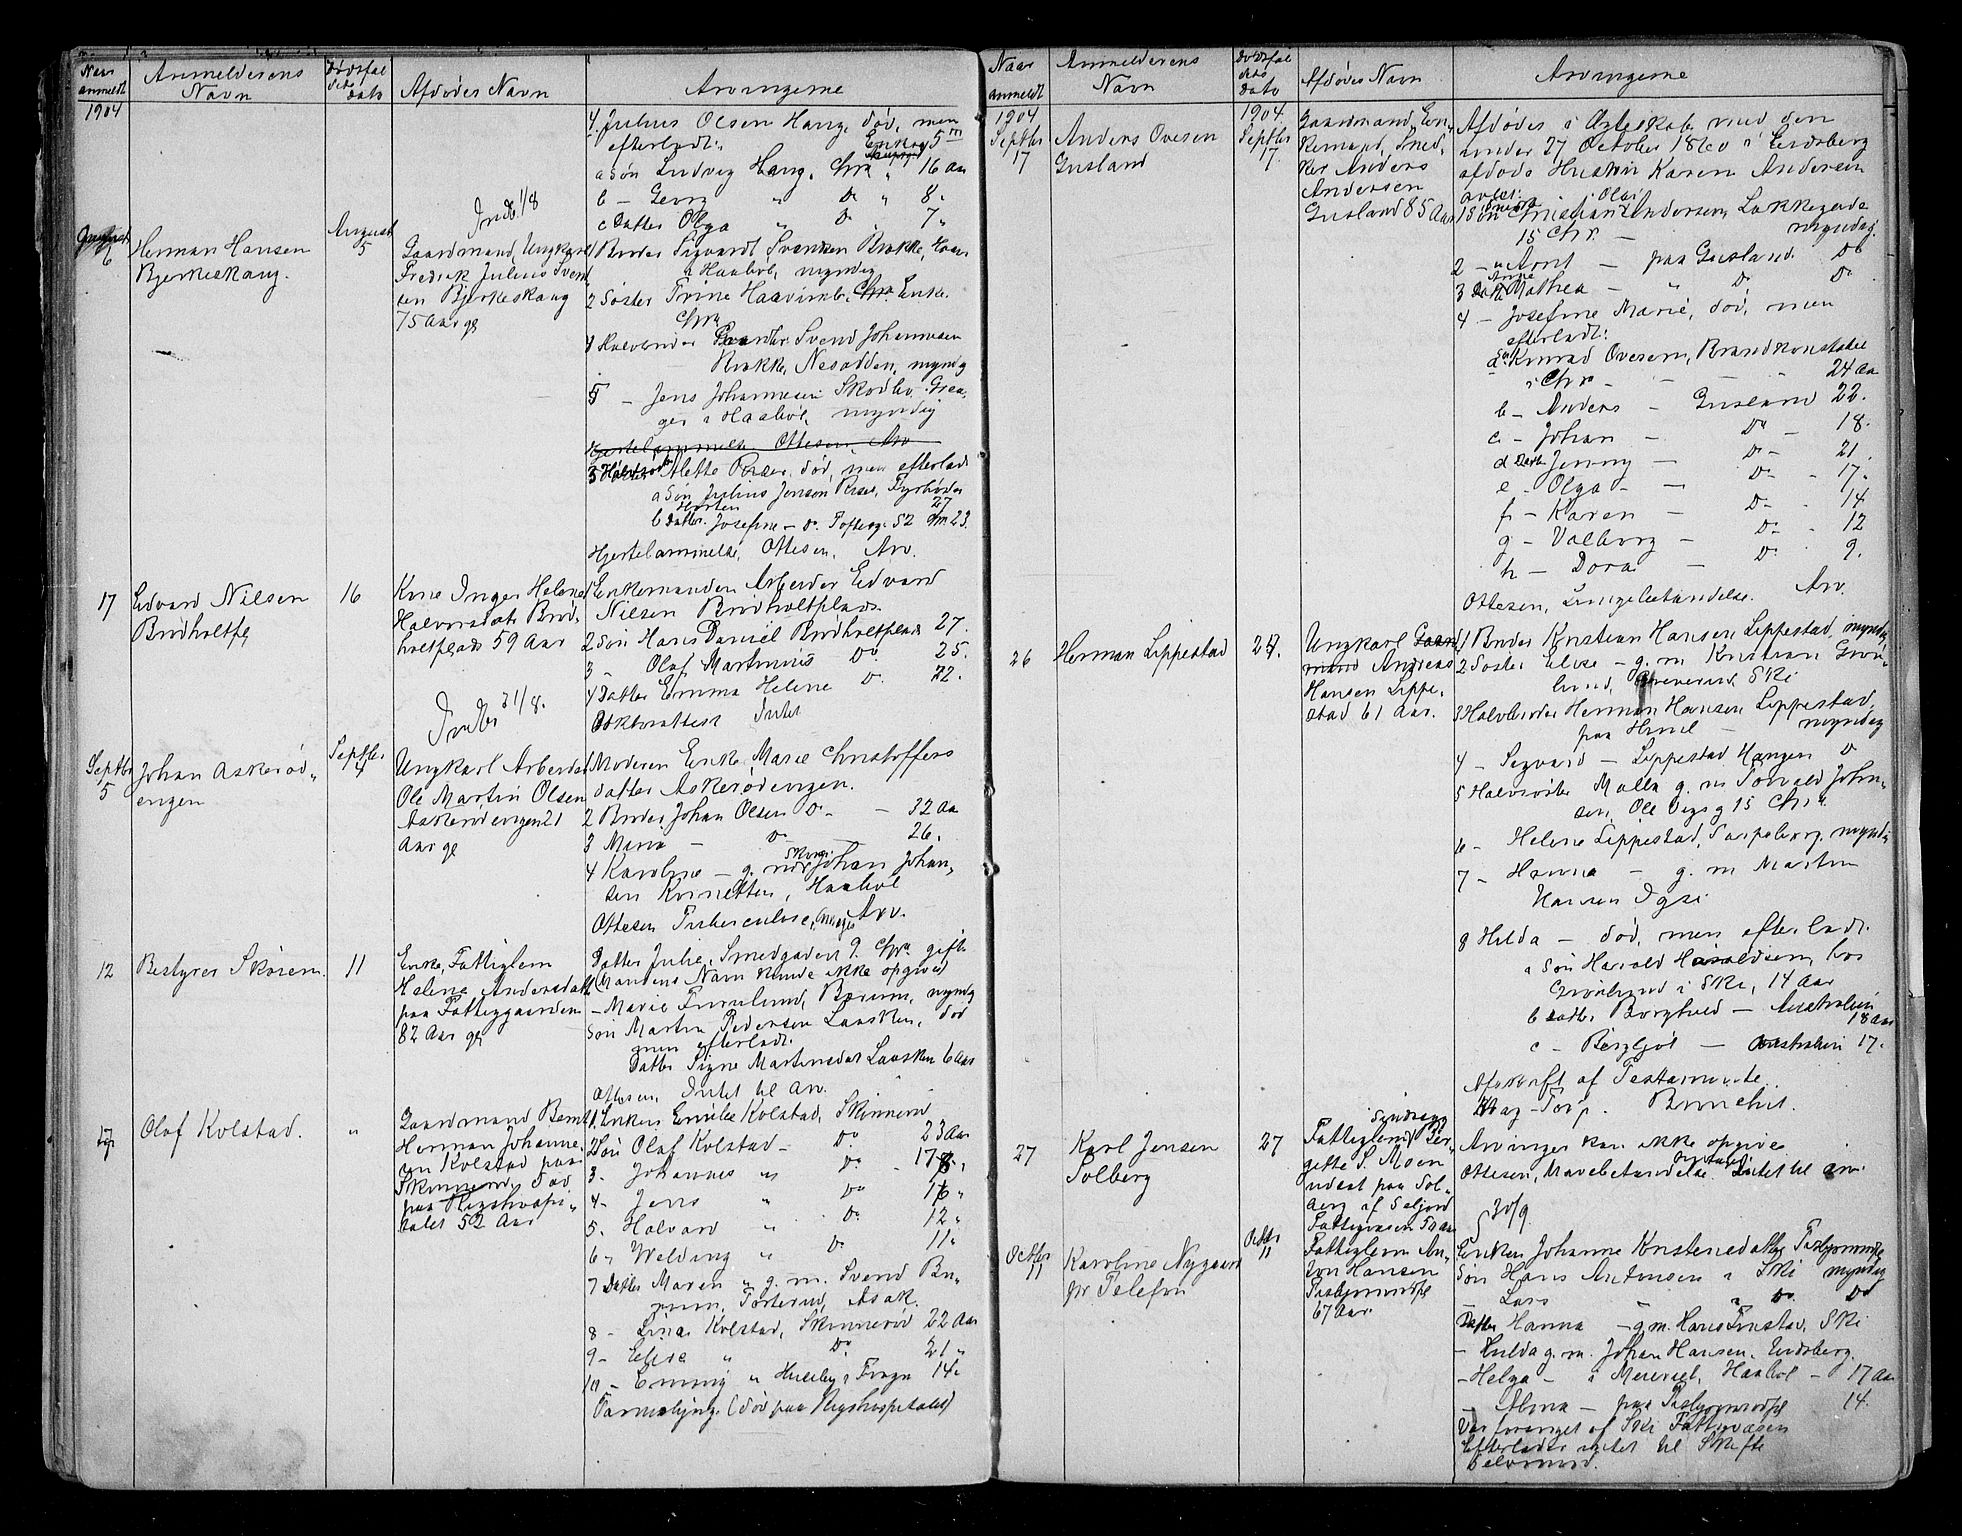 Naar anmeldt
Anmelderens Navn
Dødsfaldets Dato
Afdødes Navn
Arvingerne
1904
4. Julius Olsen Haug, død, men
efterladt:
Enke 5
a Søn Ludvig Haug, Chra 16 Aar
b - Georg " Do " 8.
c Datter Olga " Do 7 "
Indb 1/8
August 6
Herman Hansen
Bjerkeskaug.
August 5
Gaardmand, Ungkarl
Fredrik Julius Svend
sen Bjerkeskaug
75 Aar gl
1 Broder Sigvardt Svendsen Brække,
i Haabøl, myndig
2 Søster Trine Enke.
Chra
4 Halvbroder Svend Johannesen
Brække, Nesodden, myndig
5 - Jens Johannesen Skodbo
i Haabøl, myndig
Hjertelammelse Ottesen, Arv
3 Alette Riser, død, men efterladt
a Søn Julius Jenson Riser, Fyrbøder
Horten 27
b Datter Josefine - Do 52 23.
Hjertelammelse, Ottesen, Arv.
17
Edvard Nilsen
Brødholtpl
16
Kone Inger Helene
Halvorsdatter Brød
holtplads 59 Aar
1 Enkemanden Arbeider Edvard
Nilsen Brødholtplads
2 Søn Hans Daniel Brødholtplads 27.
3 " Olaf Martinius Do. 25.
4 Datter Emma Helene Do. 22.
Doktorattest Intet
Indb 31/8.
Septbr 5
Johan Askerød-
engen
Septbr 4
Ungkarl Arbeider
Ole Martin Olsen
Askerødengen 21
Aar gl
1 Moderen Enke Marie Christoffers
datter Askerødengen.
2 Broder Johan Olsen Do - 32 Aar
3 Maria - Do - 26.
4 Karoline - g. m. Johan Johan-
sen Kornetten, Haabøl
Ottesen Tuberculose, Arv.
12
Bestyrer Skoren
11
Enke, Fattiglem
Helene Andersdatter
paa Fattiggaarden
82 Aar gl
Datter Julie, Smedgaden 9. Chra gift
(Mandens Navn kunde ikke opgives)
- Marie Furulund, Bærum, myndig
Søn Martin Pedersen Laasken, død
men efterladt.
Datter Signe Martinsdatter Laasken 6 Aar
Ottesen, Intet til Arv.
17
Olaf Kolstad.
"
Gaardmand Bernt
Herman Johanne
sen Kolstad paa
Skinnerud, død
paa Rigshospi-
talet 52 Aar
1. Enken Emilie Kolstad, Skinnerud
2 Søn Olaf Kolstad - Do. 23 Aar
3 - Johannes " Do. 18,
4 - Jens " Do 16 "
5. Halvard " Do. 12 "
6 " Welding " Do 11 "
7 Datter Maren " g. m. Svend
Fosterud, Asak.
8 - Lina Kolstad, Skinnerud 22 Aar
9 - Elise " Do. 21 "
10 - Emmy " i Frogn 14.
Tarmslyng. (død paa Rigshospitalet)
Naar anmeldt
Anmelderens Navn
Dødsfaldets Dato
Afdødes Navn
Arvingerne
1904
Septbr 17
Anders Ovesen
Gusland
1904
Septbr 17
Gaardmand, En-
kemand, Smed-
Anders
Andersen
Gusland 85 Aar
Afdødes i Ægteskab med den
under 27 October 1860 i Eidsberg
afdøde Hustru Karen Andersen
avlet:
1 Søn Christian Andersen, Løkkegade
15 Chr. - myndig
2 - Arnt - paa Gusland Do
3 Datter Anne Mathea - " Do Do
4 - Josefine Marie, død, men
efterladt:
a Søn Konrad Ovesen, Brandkonstabel
i Chra - 24 Aar
b - Anders - Gusland 22.
c - Johan - Do - 18.
d Datter Jenny - Do - 21.
e - Olga - Do - 17.
f - Karen - Do - 14
g - Valborg - Do - 12
h - Dora - Do. 9.
Ottesen, Lungebetændelse. Arv.
26
Herman Lippestad
24.
Ungkarl Gaard
mand Andreas
Hansen Lippe-
stad 61 Aar.
1 Broder Kristian Hansen Lippestad, myndig
2 Søster Elise - g. m Kristian Grøn-
lund, Ski
3 Halvbroder Herman Hansen Lippestad,
paa Hvæl - myndig
4 - Sigvard - Lippestad Haugen Do
5 Halvsøster Malla g. m Torvald John-
sen, Ole Vigs g 15 Chra.
6 - Helene Lippestad, Sarpsborg, myndig
7 - Hanna - g. m Martin
Hansen
8 Hilda - død, men efterladt.
a Søn Harald Haraldsen, hos
Grønlund i Ski, 14 Aar
b Datter Borghild - Australien
18 Aar
c - Bergljot - Australien 17.
Afskrift af Testamente.
Torp. Bronchit.
27
Karl Jensen
Solberg
27
Fattiglem Ber-
gette S. Moen
indsat paa Sol-
berg af Seljord
Fattigvæsen
Arvinger kan ikke opgives
Ottesen, Mavebetændelse Intet til Arv.
30/9.
Octbr 11
Karoline Nygaard
pr Telefon
Octbr 11
Fattiglem An-
ton Hansen
67 Aar.
Enken Johanne Kristensdatter
Søn Hans Antonsen i Ski myndig
- Lars " i Do Do
Datter Hanna - g. m. Hans Finstad, Ski
- Hulda g. m. Johan Hansen, Eidsberg.
- Helga - i Haabøl - 17 Aar
- Alma - paa 14.
Var forsørget af Ski Fattigvæsen
Efterlader intet til Skifte